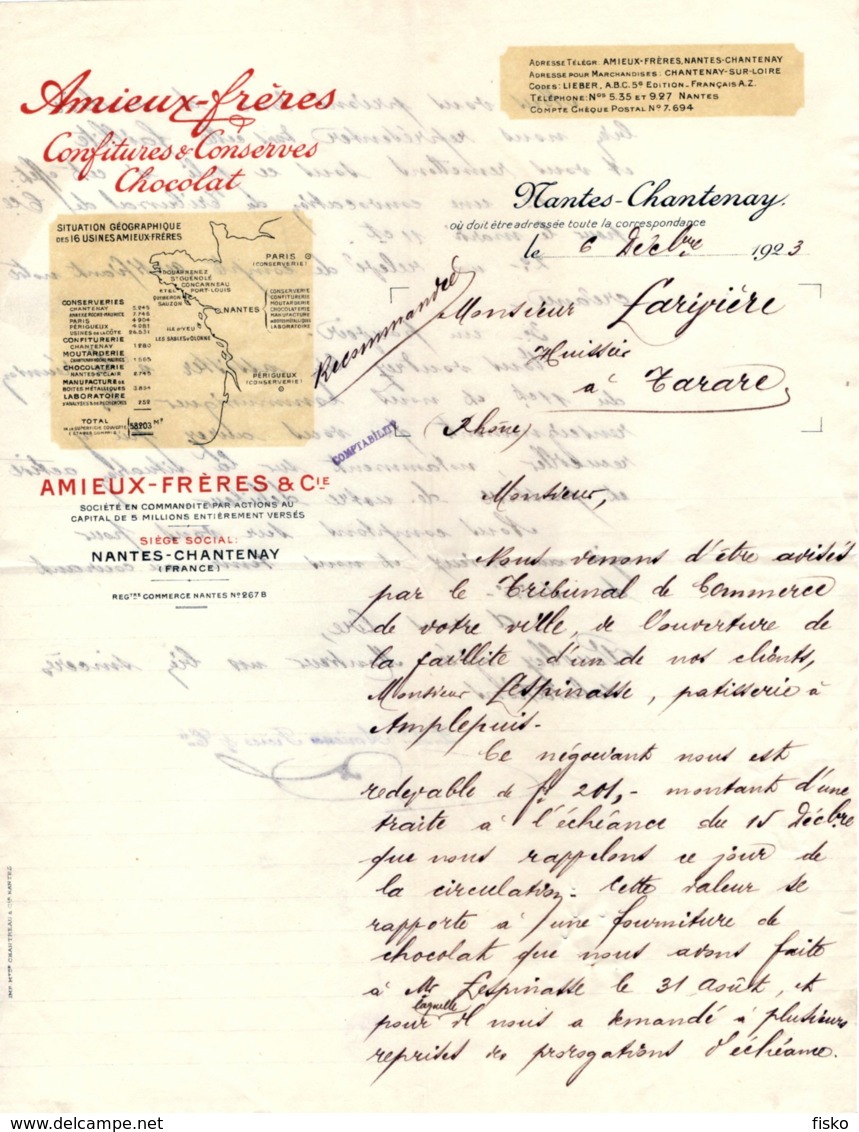 Amieux-frères
Confitures & Conserves
Chocolat
ADRESSE TÉLÉGR. AMIEUX-FRÈRES, NANTES-CHANTENAY
ADRESSE POUR MARCHANDISES : CHANTENAY-SUR-LOIRE
CODES: LIEBER, A.B.C. 5e EDITION - FRANÇAIS A.Z.
TÉLÉPHONE: Nos 5.35 ET 9.27 NANTES
COMPTE CHÈQUE POSTAL No 7.694
Nantes-Chantenay.
où doit être adressée toute la correspondance
le 6 Décbre 1923
SITUATION GÉOGRAPHIQUE
DES 16 USINES AMIEUX-FRÈRES
PARIS
(CONSERVERIE)
DOUARNENEZ
ST GUÉNOLÉ
CONCARNEAU
PORT-LOUIS
ETEL
QUIBERON
SAUZON
NANTES
CONSERVERIE
CONFITURERIE
MOUTARDERIE
CHOCOLATERIE
MANUFACTURE
LABORATOIRE
ILE D'YEU
LES SABLES D'OLONNE
PÉRIGUEUX
(CONSERVERIE)
CONSERVERIES
CHANTENAY
PARIS 4904
PÉRIGUEUX 4081
USINES DE LA CÔTE
CONFITURERIE
CHANTENAY 1280
MOUTARDERIE
CHOCOLATERIE
MANUFACTURE DE
BOITES MÉTALLIQUES
LABORATOIRE
TOTAL 58203 M2
Recommandée
Monsieur Larivière
Huissier
à Tarare
(Rhône)
COMPTABILITÉ
AMIEUX-FRÈRES & CIE
SOCIÉTÉ EN COMMANDITE PAR ACTIONS AU
CAPITAL DE 5 MILLIONS ENTIÈREMENT VERSÉS
SIÈGE SOCIAL:
NANTES-CHANTENAY
(FRANCE)
REGtre COMMERCE NANTES No 267 B
Monsieur,
Nous venons d'être avisés
par le Tribunal de Commerce
de votre ville, de l'ouverture de
la faillite d'un de nos clients,
Monsieur Lespinasse, patisserie à
Amplepuis.
Ce négociant nous est
redevable de fr 201,- montant d'une
traite à l'échéance du 15 Décbre
que nous rappelons ce jour de
la circulation. Cette valeur se
rapporte à une fourniture de
chocolat que nous avons faite
à Mr Lespinasse le 31 Août, et
pour laquelle il nous a demandé à plusieurs
reprises des prorogations d'échéance.
IMP. Mce CHANTREAU & Cie NANTES
fisko